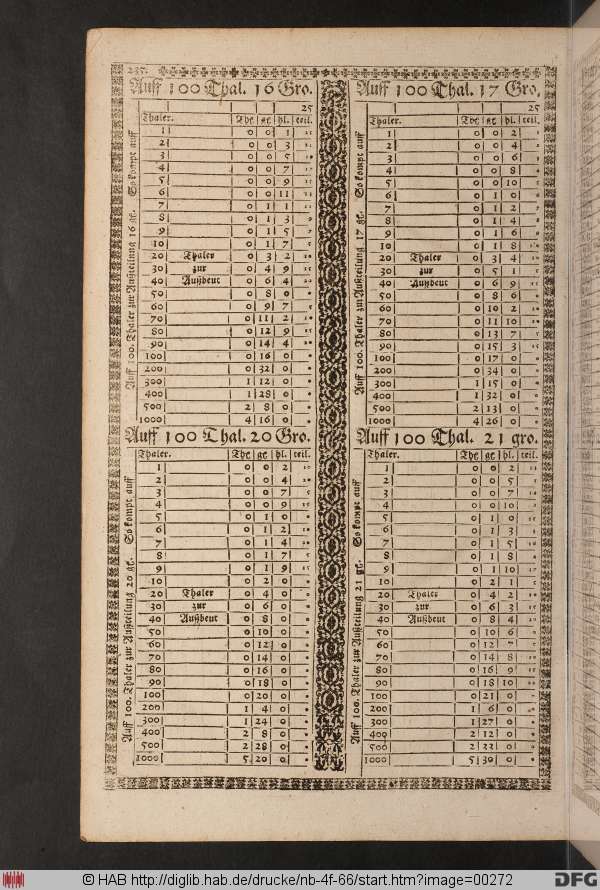 237.
Auff 100 Thal. 16 Gro.
25
Thaler. The gr hl. teil.
1 0 0 1
2 0 0 3
3 0 0 5
4 0 0 7
5 0 0 9
6 0 0 11
7 0 1 1
8 0 1 3
9 0 1 5
10 0 1 7
20 Thaler 0 3 2
30 zur 0 4 9
40 Außbeut 0 6 4
50 0 8 0
60 0 9 7
70 0 11 2
80 0 12 9
90 0 14 4
100 0 16 0
200 0 32 0
300 1 12 0
400 1 28 0
500 2 8 0
1000 4 16 0
Auff 100. Thaler zur Außteilung 16 gr. So kompt auff
Auff 100 Thal. 17 Gro.
25
Thaler. The gr hl. teil.
1 0 0 2
2 0 0 4
3 0 0 6
4 0 0 8
5 0 0 10
6 0 1 0
7 0 1 2
8 0 1 4
9 0 1 6
10 0 1 8
20 Thaler 0 3 4
30 zur 0 5 1
40 Außbeut 0 6 9
50 0 8 6
60 0 10 2
70 0 11 10
80 0 13 7
90 0 15 3
100 0 17 0
200 0 34 0
300 1 15 0
400 1 32 0
500 2 13 0
1000 4 26 0
Auff 100. Thaler zur Außteilung 17 gr. So kompt auff
Auff 100 Thal. 20 Gro.
Thaler. The gr hl. teil.
1 0 0 2
2 0 0 4
3 0 0 7
4 0 0 9
5 0 1 0
6 0 1 2
7 0 1 4
8 0 1 7
9 0 1 9
10 0 2 0
20 Thaler 0 4 0
30 zur 0 6 0
40 Außbeut 0 8 0
50 0 10 0
60 0 12 0
70 0 14 0
80 0 16 0
90 0 18 0
100 0 20 0
200 1 4 0
300 1 24 0
400 2 8 0
500 2 28 0
1000 5 20 0
Auff 100. Thaler zur Außteilung 20 gr. So kompt auff
Auff 100 Thal. 21 gro.
Thaler. The gr hl. teil.
1 0 0 2
2 0 0 5
3 0 0 7
4 0 0 10
5 0 1 0
6 0 1 3
7 0 1 5
8 0 1 8
9 0 1 10
10 0 2 1
20 Thaler 0 4 2
30 zur 0 6 3
40 Außbeut 0 8 4
50 0 10 6
60 0 12 7
70 0 14 8
80 0 16 9
90 0 18 10
100 0 21 0
200 1 6 0
300 1 27 0
400 2 12 0
500 2 33 0
1000 5 30 0
Auff 100. Thaler zur Außteilung 21 gr. So kompt auff
© HAB http://diglib.hab.de/drucke/nb-4f-66/start.htm?image=00272
DFG